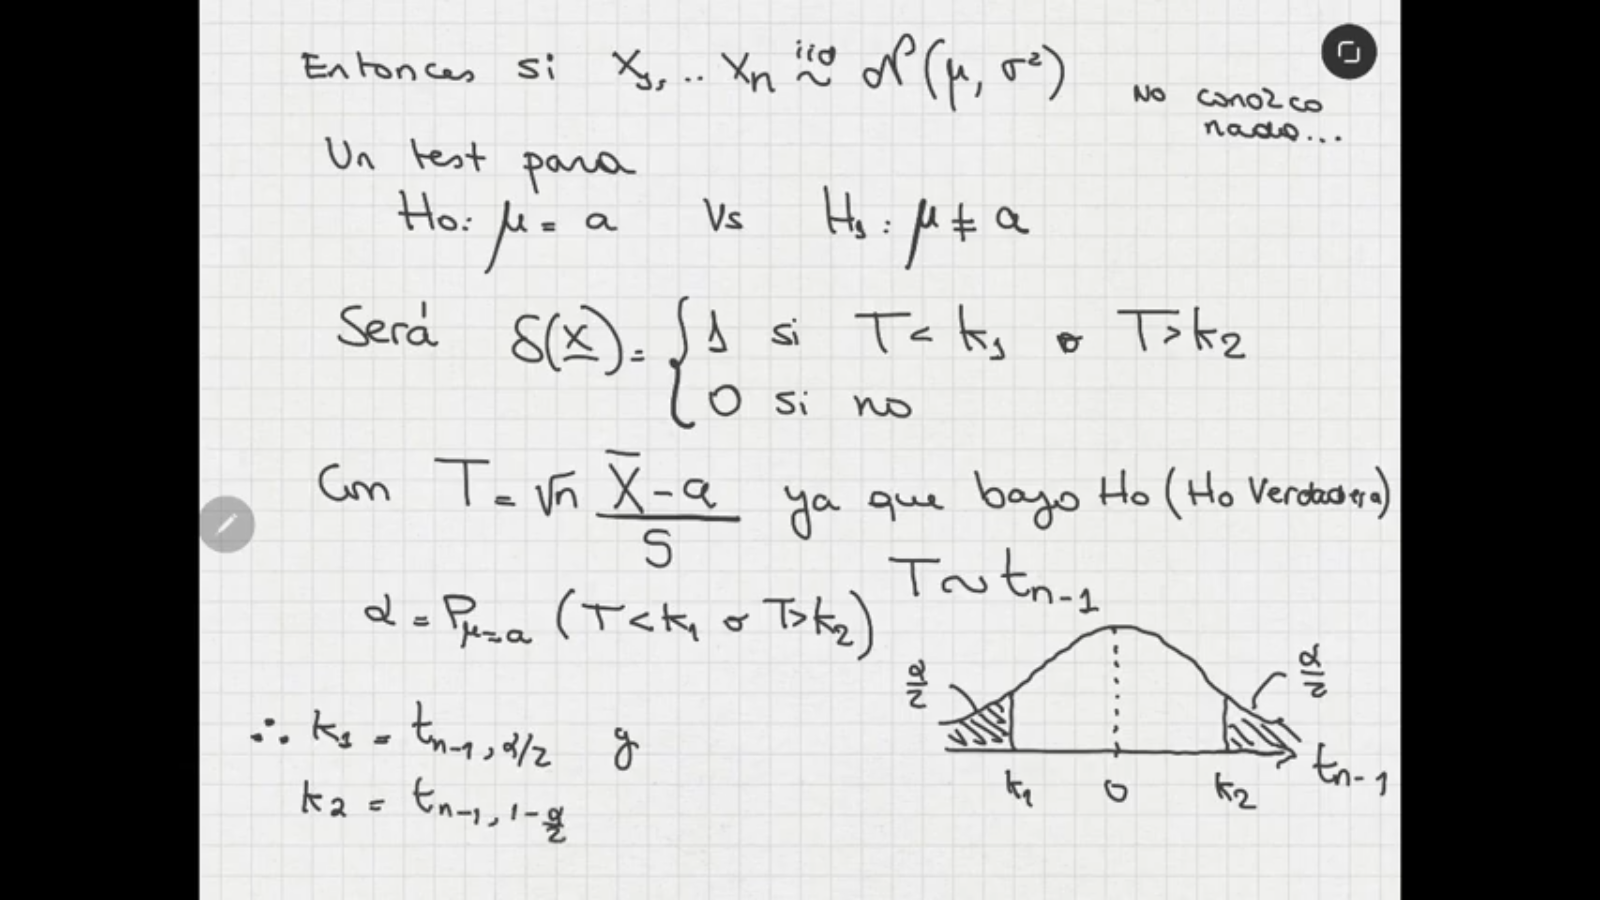 Entonces si X₁, .. Xn iid ~ N(μ, σ²)
No conozco
nada...
Un test para
Ho: μ = a Vs H₁: μ ≠ a
Será δ(X) = { 1 si T < k₁ o T > k₂
0 si no
Con T = √n (X̄ - a) / S ya que bajo Ho (Ho Verdadera)
T ~ tn-1
α = Pμ=a (T < k₁ o T > k₂)
α/2 α/2
∴ k₁ = tn-1, α/2 y
k₂ = tn-1, 1-α/2
k₁ 0 k₂ tn-1